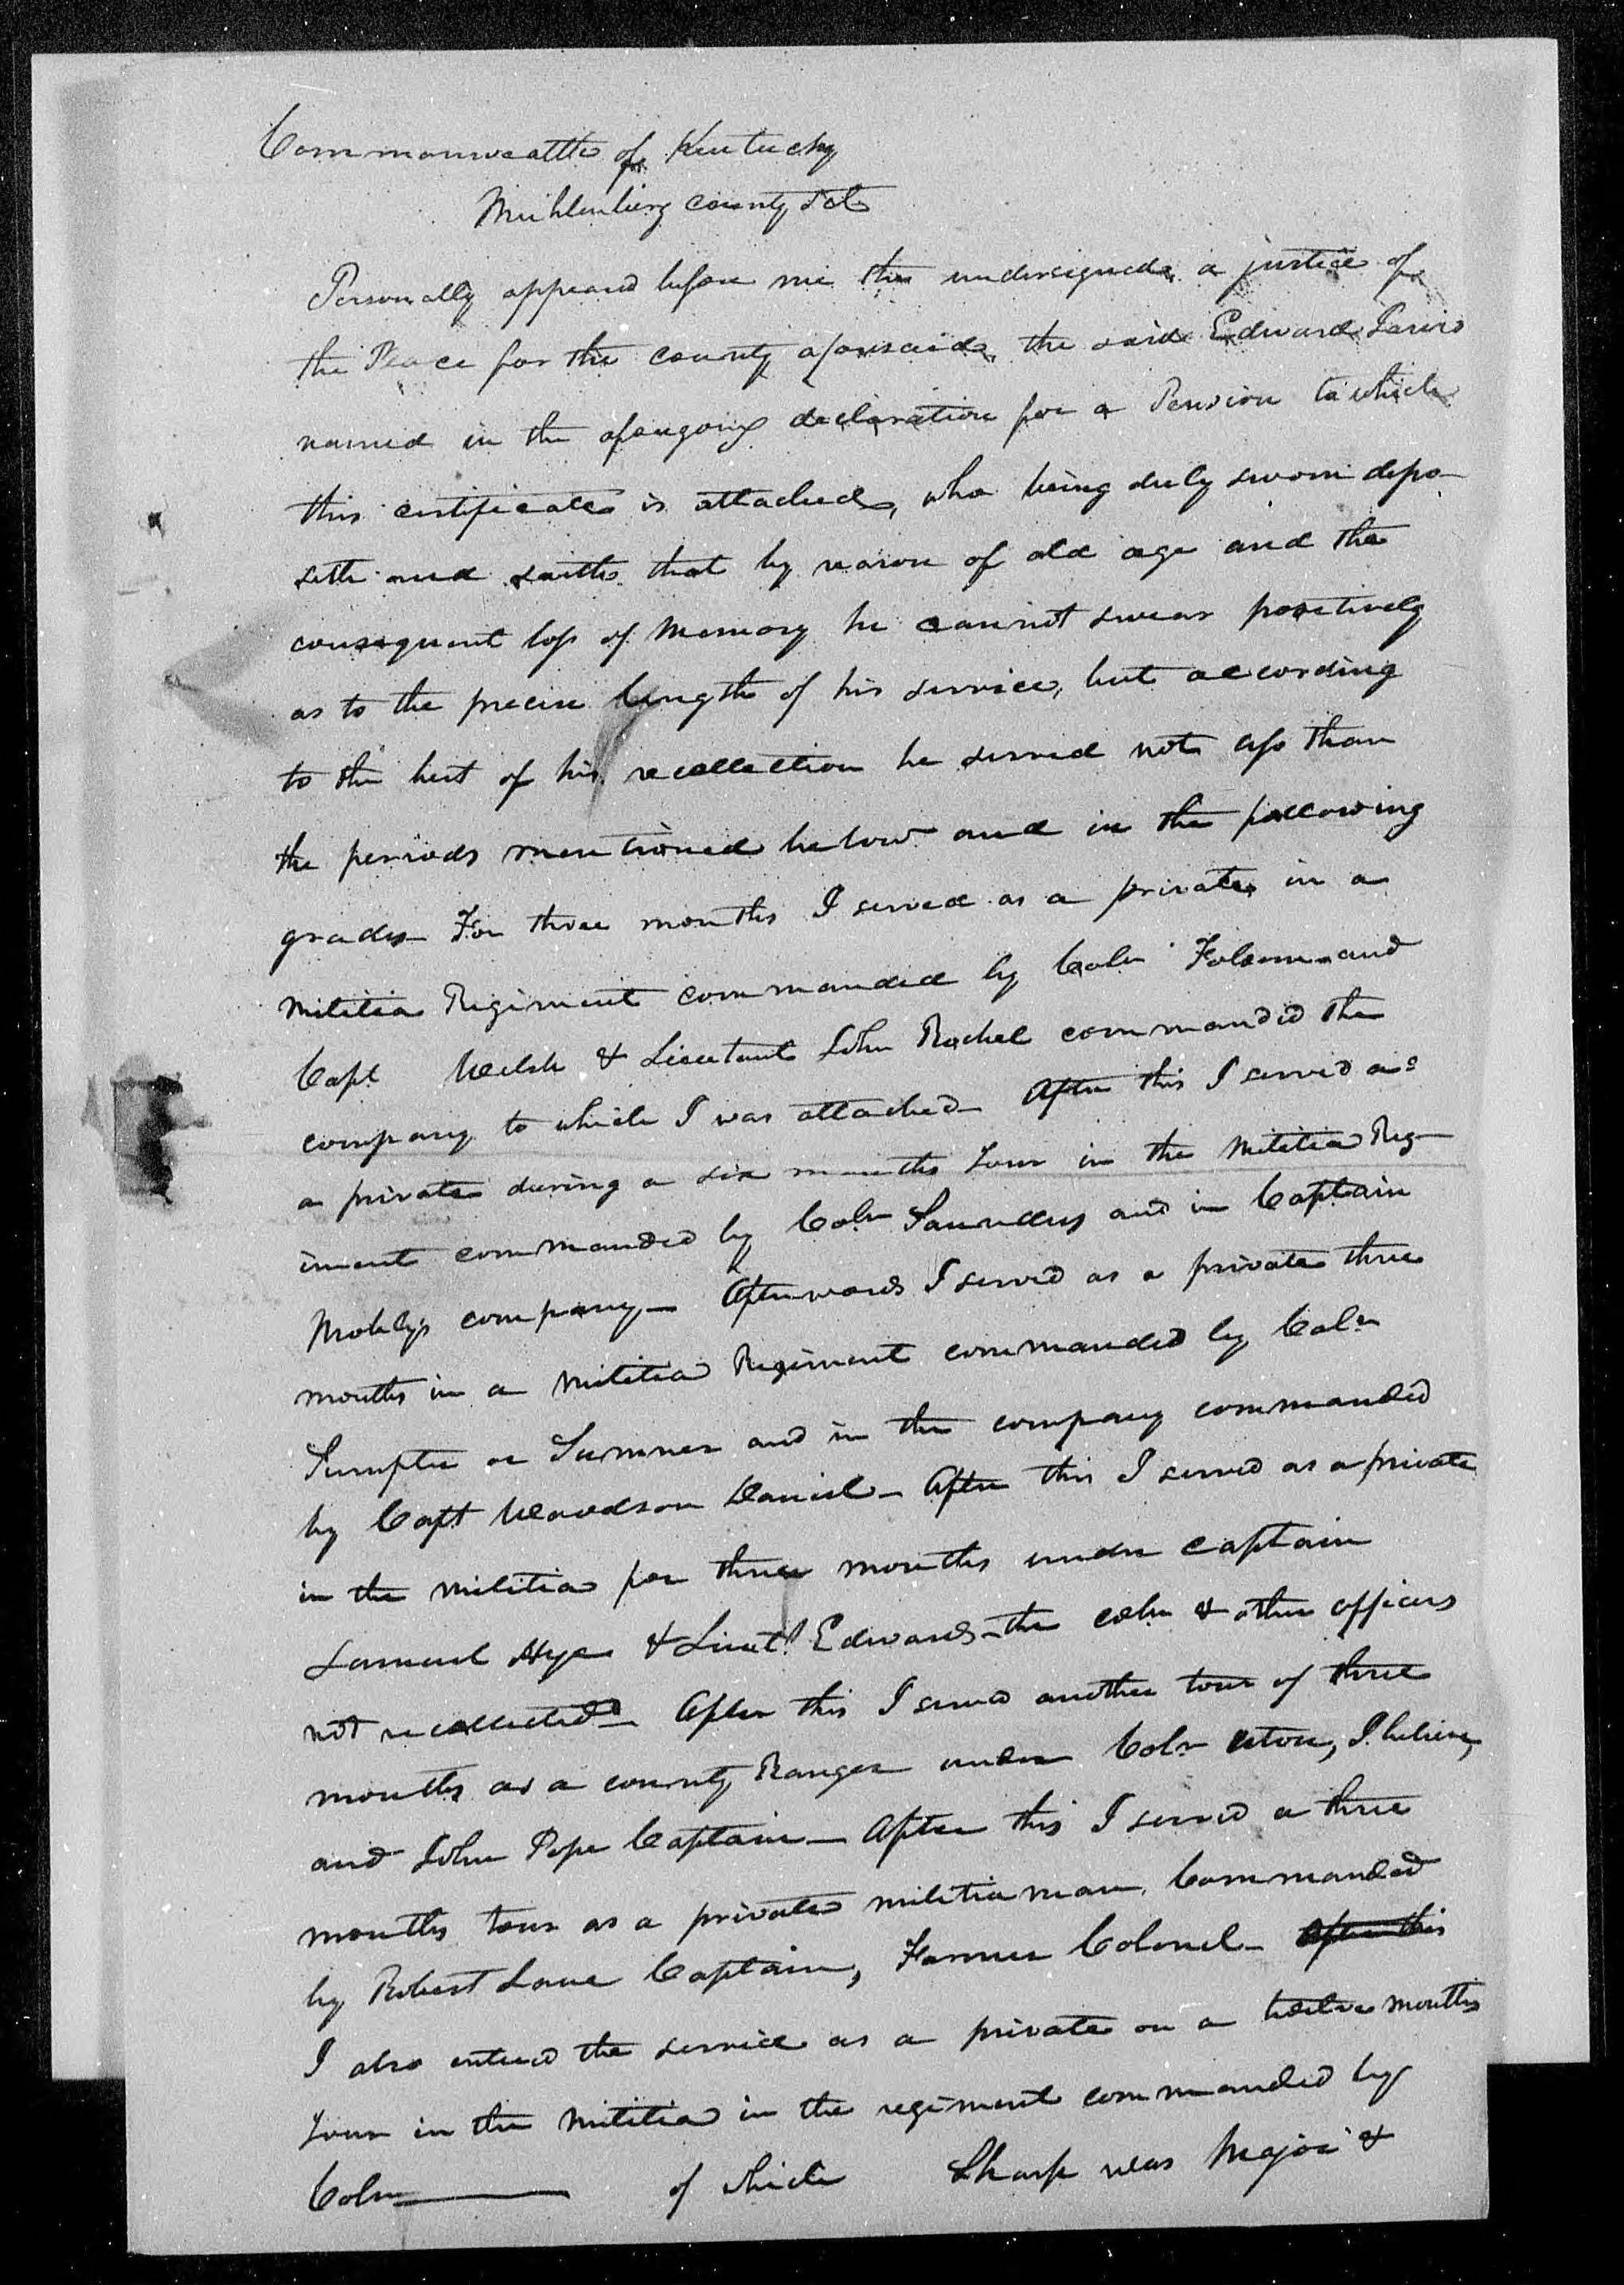 Commonwealth of Kentucky
Muhlenberg County Sct
Personally appeard before me the undersigned, a justice of
the Peace for the county aforesaid, the said Edward Jarvis
named in the aforegoing declaration for a Pension to which
this certificate is attached, who being duly sworn depo-
seth and saith that by reason of old age and the
consequent loss of Memory he cannot swear positively
as to the precise length of his service, but according
to the best of his recollection he served not less than
the periods mentioned below and in the following
grades— For three months I served as a private in a
Militia Regiment commanded by Coln Folsom and
Capt Welsh & Lieutant John Rachel commanded the
company to which I was attached— After this I served as
a private during a six months Tour in the Militia Reg-
iment commanded by Coln Saunders and in Captain
Mobley's company— Afterwards I served as a private three
months in a Militia Regiment commanded by Coln
Sumpter or Sumner and in the company commanded
by Capt Woodson Daniel— After this I served as a private
in the Militia for three months under Captain
Samuel Hyes & Lieut. Edwards— the coln & other officers
not recollected— After this I served another tour of three
months as a county Ranger under Coln Eton, I believe,
and John Pope Captain— After this I served a three
months tour as a private militia man, Commanded
by Robert Lane Captain, Farmer Colonel— After this
I also entered the service as a private on a twelve months
Tour in the Militia in the regiment commanded by
Coln——— of which Sharp was Major &